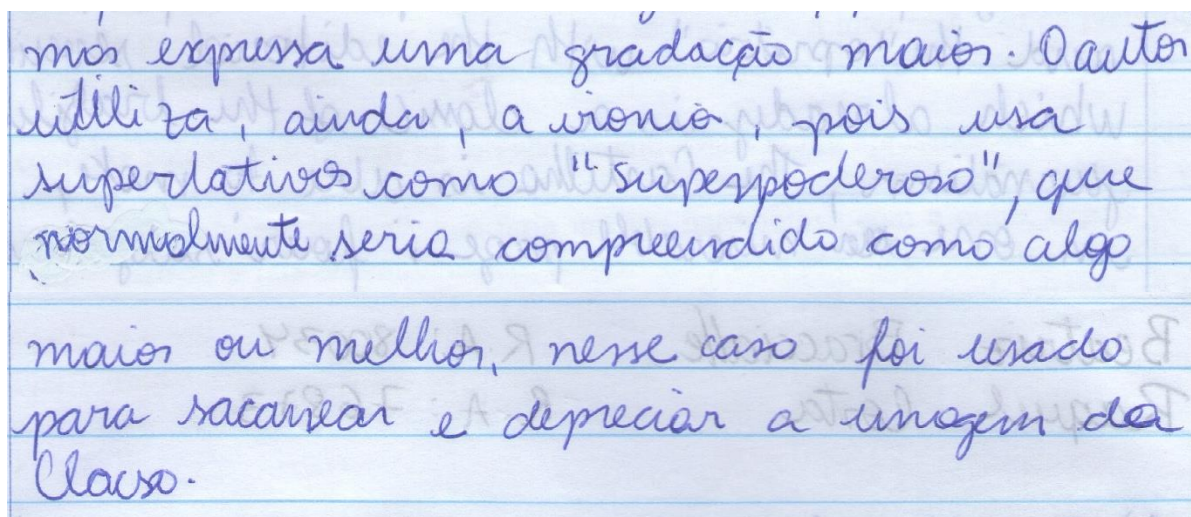 mos expressa uma gradação maior. O autor
utiliza, ainda, a ironia, pois usa
superlativos como "superpoderoso", que
normalmente seria compreendido como algo
maior ou melhor, nesse caso foi usado
para sacanear e depreciar a imagem da